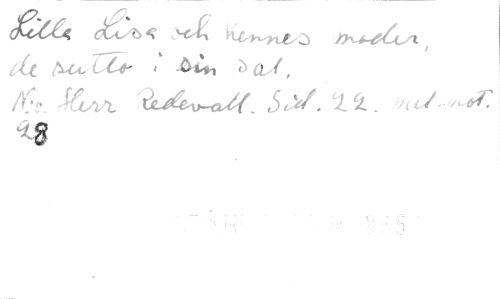 Lilla Lisa och hennes moder,
de sutto i sin sal.
N:o Herr Redevall. Sid. 22. mel-not.
28